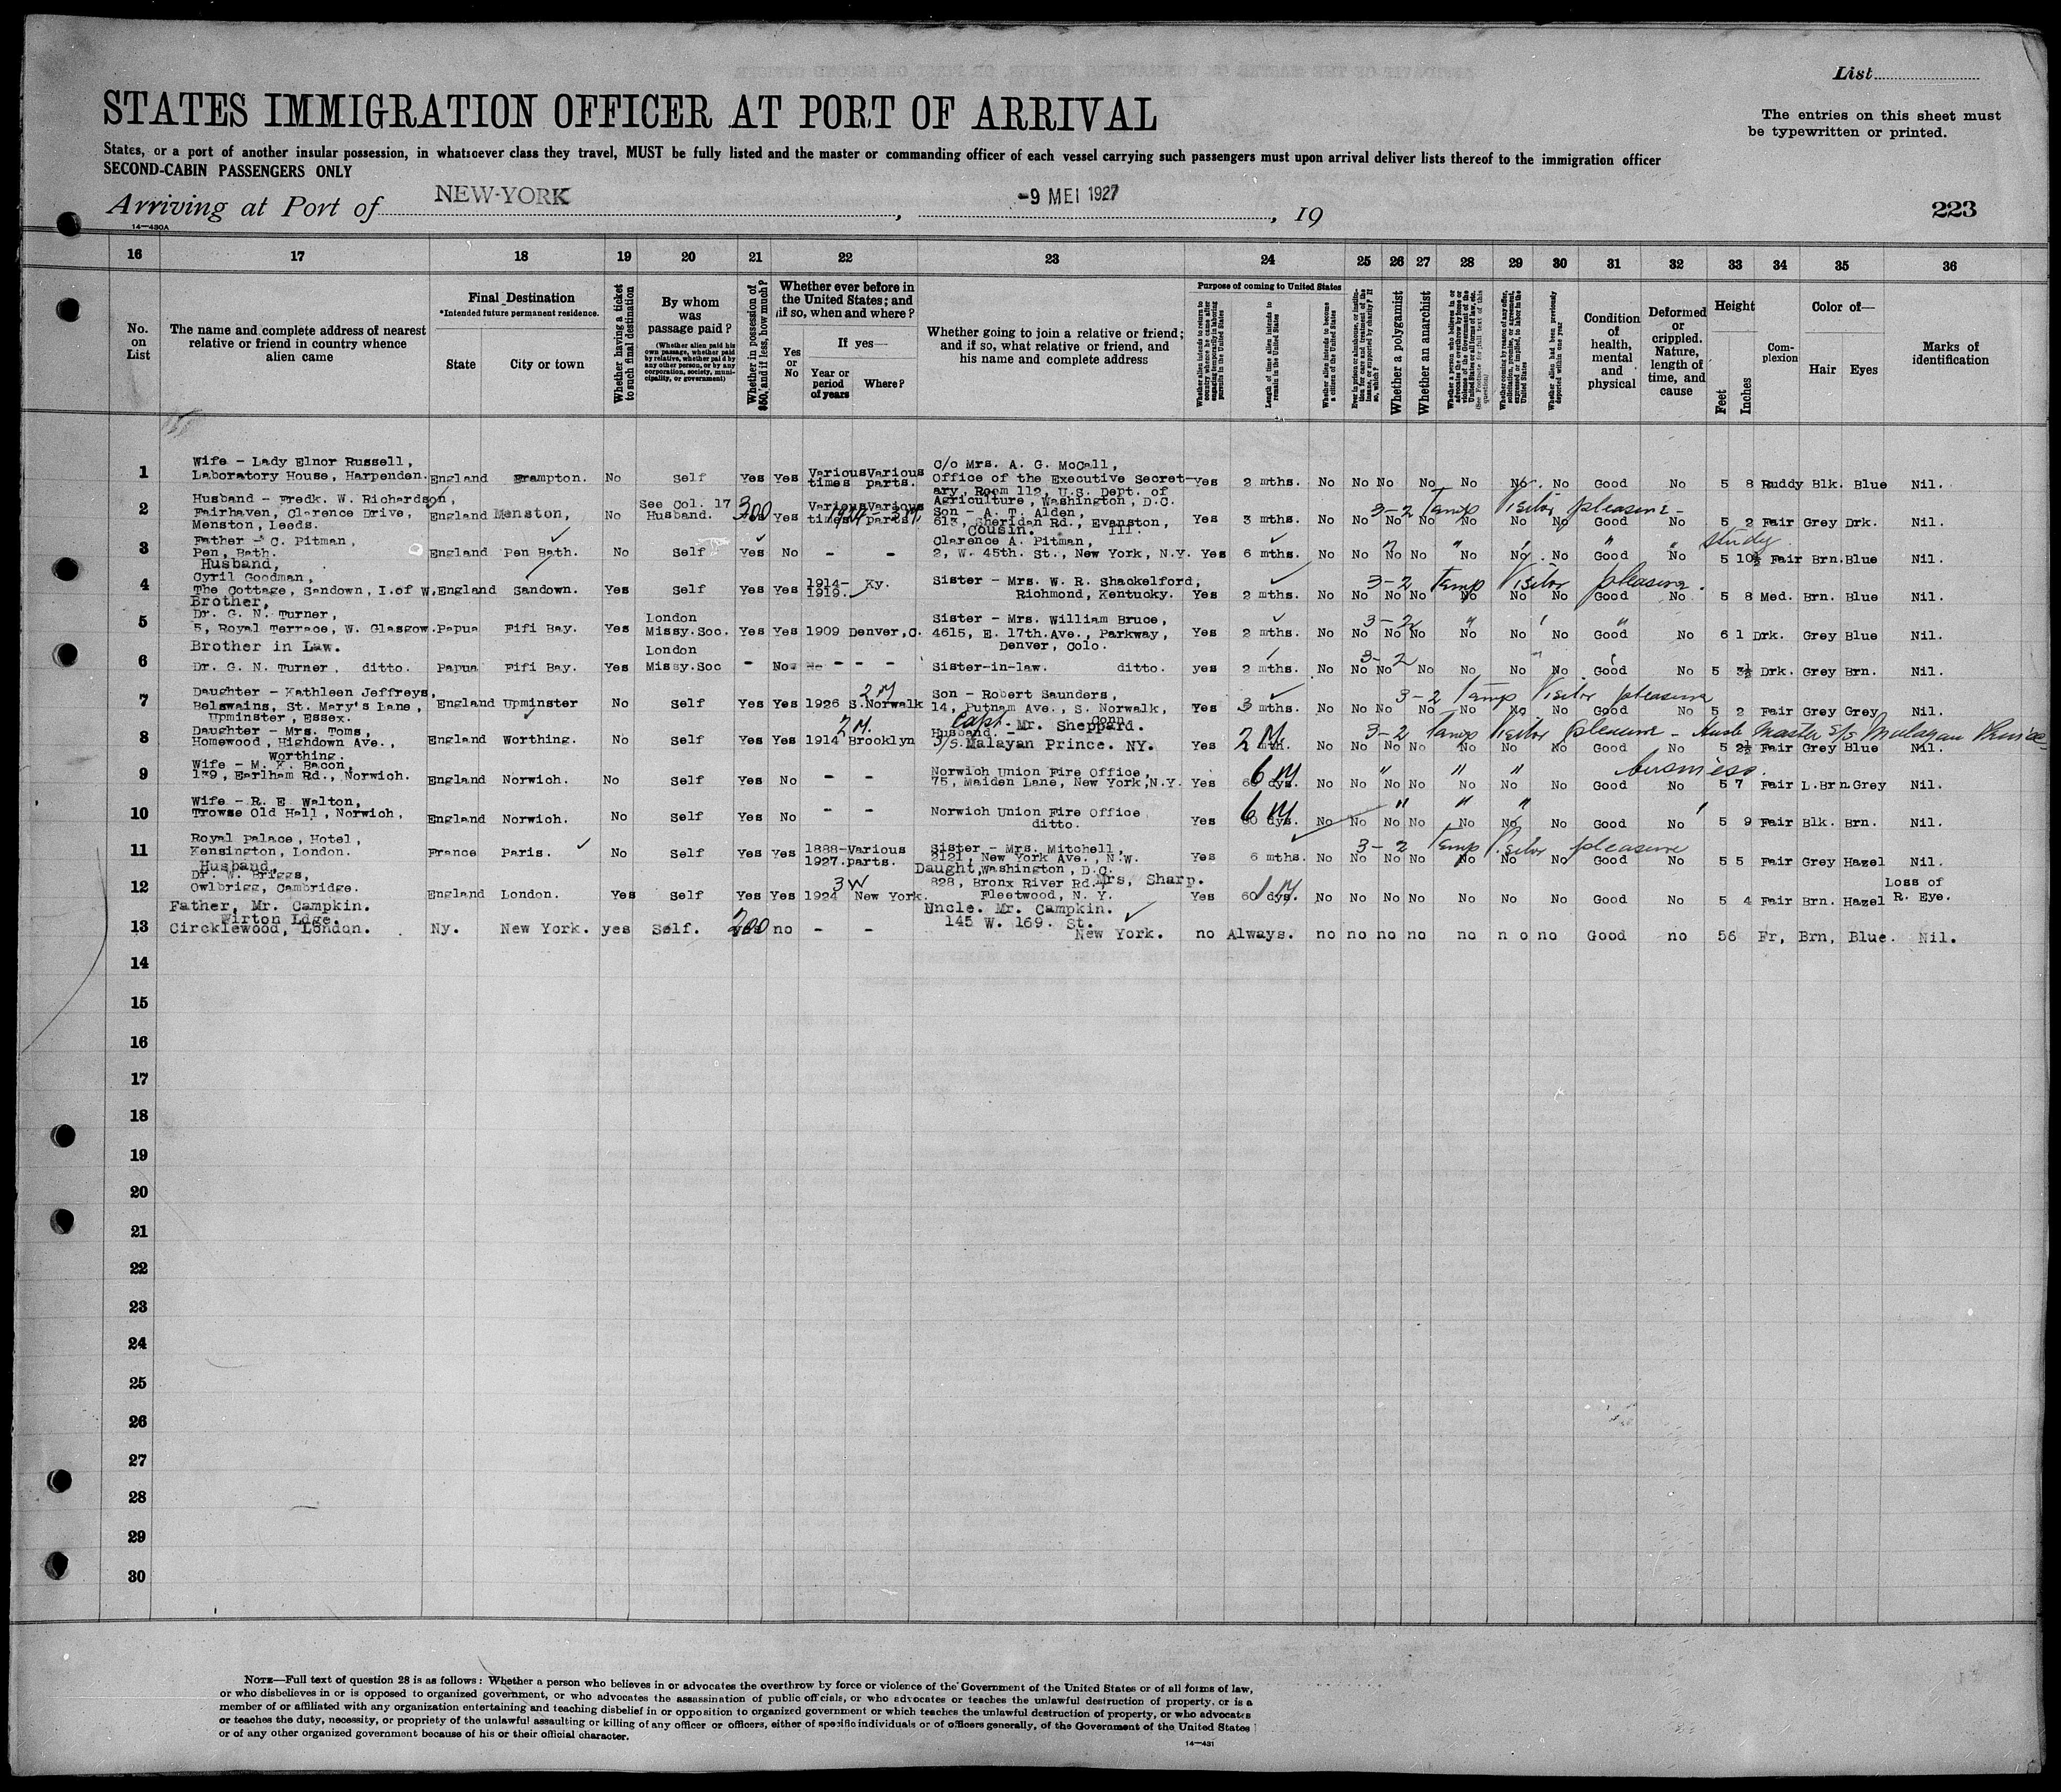 List
STATES IMMIGRATION OFFICER AT PORT OF ARRIVAL
The entries on this sheet must
be typewritten or printed.
States, or a port of another insular possession, in whatsoever class they travel, MUST be fully listed and the master or commanding officer of each vessel carrying such passengers must upon arrival deliver lists thereof to the immigration officer
SECOND-CABIN PASSENGERS ONLY
Arriving at Port of NEW-YORK, -9 MEI 1927, 19
223
14—430A
16 17 18 19 20 21 22 23 24 25 26 27 28 29 30 31 32 33 34 35 36
No. on List
The name and complete address of nearest relative or friend in country whence alien came
Final Destination
*Intended future permanent residence.
State City or town
Whether having a ticket to such final destination
By whom was passage paid?
(Whether alien paid his own passage, whether paid by relative, whether paid by any other person, or by any corporation, society, municipality, or government)
Whether in possession of $50, and if less, how much?
Whether ever before in the United States; and if so, when and where?
Yes or No
If yes—
Year or period of years Where?
Whether going to join a relative or friend; and if so, what relative or friend, and his name and complete address
Purpose of coming to United States
Whether alien intends to return to country whence he came after engaging temporarily in laboring pursuits in the United States
Length of time alien intends to remain in the United States
Whether alien intends to become a citizen of the United States
Ever in prison or almshouse, or institution for care and treatment of the insane, or supported by charity? If so, which?
Whether a polygamist
Whether an anarchist
Whether a person who believes in or advocates the overthrow by force or violence of the Government of the United States or all forms of law, etc. (See Footnote for full text of this question)
Whether coming by reason of any offer, solicitation, promise, or agreement, expressed or implied, to labor in the United States
Whether alien had been previously deported within one year
Condition of health, mental and physical
Deformed or crippled. Nature, length of time, and cause
Height
Feet Inches
Complexion
Color of—
Hair Eyes
Marks of identification
1 Wife - Lady Elnor Russell,
Laboratory House, Harpenden. England Brampton. No Self Yes Yes Various times Various parts. C/o Mrs. A. G. McCall,
Office of the Executive Secretary, Room 112, U.S. Dept. of
Agriculture, Washington, D.C. Yes 2 mths. No No No No No No No Good No 5 8 Ruddy Blk. Blue Nil.
2 Husband - Fredk. W. Richardson,
Fairhaven, Clarence Drive,
Menston, Leeds. England Menston, No See Col. 17 Husband. 300 Yes Various times Various parts Son - A. T. Alden,
613, Sheridan Rd., Evanston, Ill. Yes 3 mths. No No No No No No No Good No 5 2 Fair Grey Drk. Nil.
3-2 Temp Visitor pleasure -
3 Father - C. Pitman,
Pen, Bath. England Pen Bath. No Self Yes No - - Cousin.
Clarence A. Pitman,
2, W. 45th. St., New York, N.Y. Yes 6 mths. No No No No No No No Good No 5 10½ Fair Brn. Blue Nil.
study
4 Husband,
Cyril Goodman,
The Cottage, Sandown, I.of W, England Sandown. Yes Self Yes Yes 1914-1919. Ky. Sister - Mrs. W. R. Shackelford,
Richmond, Kentucky. Yes 2 mths. No No No No No No No Good No 5 8 Med. Brn. Blue Nil.
3-2 Temp Visitor pleasure.
5 Brother,
Dr. G. N. Turner,
5, Royal Terrace, W. Glasgow. Papua Fifi Bay. Yes London Missy. Soc. Yes Yes 1909 Denver, C. Sister - Mrs. William Bruce,
4615, E. 17th. Ave., Parkway,
Denver, Colo. Yes 2 mths. No No No No No No No Good No 6 1 Drk. Grey Blue Nil.
3-2 " "
6 Brother in Law.
Dr. G. N. Turner, ditto. Papua Fifi Bay. Yes London Missy. Soc - No - - - Sister-in-law. ditto. yes 2 mths. No No No No No No No Good No 5 3½ Drk. Grey Brn. Nil.
3-2
7 Daughter - Kathleen Jeffreys,
Belswains, St. Mary's Lane,
Upminster, Essex. England Upminster No Self Yes Yes 1926 2 M S. Norwalk Son - Robert Saunders,
14, Putnam Ave., S. Norwalk,
Conn. Yes 3 mths. No No No No No No No Good No 5 2 Fair Grey Grey Nil.
3-2 Temp Visitor pleasure
8 Daughter - Mrs. Toms,
Homewood, Highdown Ave.,
Worthing. England Worthing. No Self Yes Yes 1914 2 M. Brooklyn Husband. - Capt. Mr. Sheppard.
S/S. Malayan Prince. NY. Yes 2 M. No No No No No No No Good No 5 2½ Fair Grey Blue Nil.
3-2 Temp Visitor pleasure - Husb Master S/S Malayan Prince
9 Wife - M. K. Bacon,
139, Earlham Rd., Norwich. England Norwich. No Self Yes No - - Norwich Union Fire Office,
75, Maiden Lane, New York, N.Y. Yes 60 dys. 6 M No No No No No No No Good No 5 7 Fair L.Brn. Grey Nil.
" " " business.
10 Wife - R. E. Walton,
Trowse Old Hall, Norwich, England Norwich. No Self Yes No - - Norwich Union Fire Office
ditto. Yes 60 dys. 6 M No No No No No No No Good No 5 9 Fair Blk. Brn. Nil.
" " "
11 Royal Palace, Hotel,
Kensington, London. France Paris. No Self Yes Yes 1888-1927. Various parts. Sister - Mrs. Mitchell,
2121, New York Ave., N.W.
Washington, D.C. Yes 6 mths. No No No No No No No Good No 5 5 Fair Grey Hazel Nil.
3-2 Temp Visitor pleasure
12 Husband,
Dr. W. Briggs,
Owlbrigg, Cambridge. England London. Yes Self Yes Yes 1924 3 W New York. Daught, Mrs, Sharp.
828, Bronx River Rd.,
Fleetwood, N. Y. Yes 60 dys. 1 M No No No No No No No Good No 5 4 Fair Brn. Hazel Loss of R. Eye.
13 Father, Mr. Campkin.
Firton Ldge.
Circklewood, London. Ny. New York. yes Self. 200 no - - Uncle. Mr. Campkin.
145 W. 169. St.
New York. no Always. no no no no no no no Good no 5 6 Fr, Brn, Blue. Nil.
14
15
16
17
18
19
20
21
22
23
24
25
26
27
28
29
30
NOTE—Full text of question 28 is as follows: Whether a person who believes in or advocates the overthrow by force or violence of the Government of the United States or of all forms of law,
or who disbelieves in or is opposed to organized government, or who advocates the assassination of public officials, or who advocates or teaches the unlawful destruction of property, or is a
member of or affiliated with any organization entertaining and teaching disbelief in or opposition to organized government or which teaches the unlawful destruction of property, or who advocates
or teaches the duty, necessity, or propriety of the unlawful assaulting or killing of any officer or officers, either of specific individuals or of officers generally, of the Government of the United States
or of any other organized government because of his or their official character.
14—431